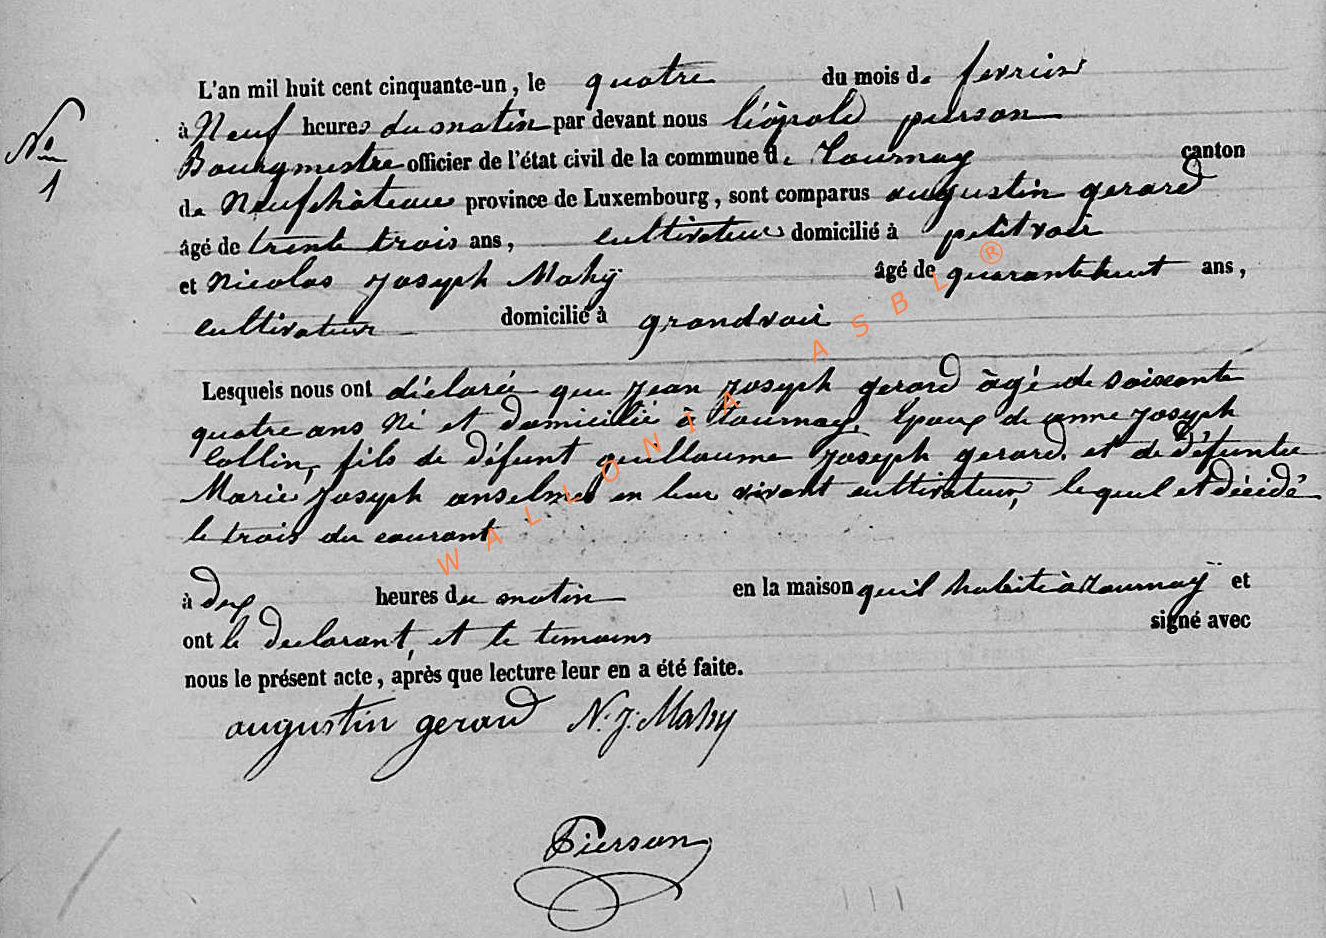 L'an mil huit cent cinquante-un, le quatre du mois de fevrier
N° 1
à Neuf heures du matin par devant nous léopold pierson
Bourgmestre officier de l'état civil de la commune de Tournay canton
de Neufchâteau province de Luxembourg, sont comparus augustin gerard
âgé de trente trois ans, cultivateur domicilié à petitvoir
et Nicolas Joseph Mahÿ âgé de quarantehuit ans,
cultivateur domicilié à grandvoir
Lesquels nous ont déclaré que Jean Joseph gerard âgé de soixante
quatre ans Né et domicilié à tournay, Epoux de anne Joseph
Collin, fils de défunt guillaume Joseph gerard et de défunte
Marie Joseph anselme en leur vivant cultivateur, lequel et décédé
le trois du courant
à deux heures du matin en la maison quil habite à Tournaÿ et
ont le declarant, et te temoins signé avec
nous le présent acte, après que lecture leur en a été faite.
augustin gerard N. J. Mahy
Pierson
WALLONIA ASBL ®